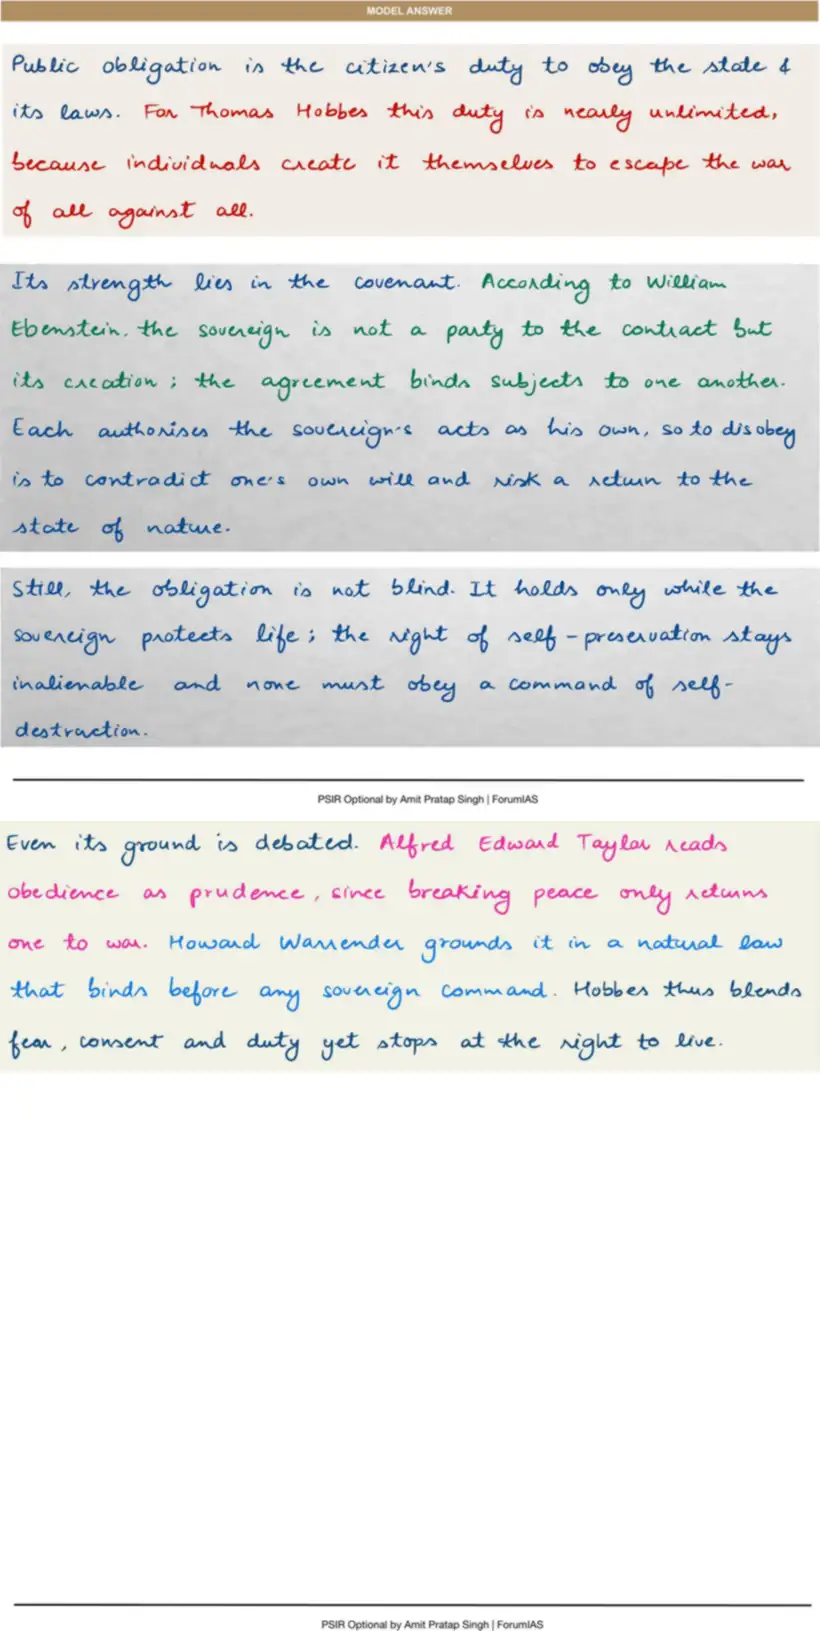 MODEL ANSWER
Public obligation is the citizen's duty to obey the state &
its laws. For Thomas Hobbes this duty is nearly unlimited,
because individuals create it themselves to escape the war
of all against all.
Its strength lies in the covenant. According to William
Ebenstein, the sovereign is not a party to the contract but
its creation; the agreement binds subjects to one another.
Each authorises the sovereign's acts as his own, so to disobey
is to contradict one's own will and risk a return to the
state of nature.
Still, the obligation is not blind. It holds only while the
sovereign protects life; the right of self-preservation stays
inalienable and none must obey a command of self-
destruction.
PSIR Optional by Amit Pratap Singh | ForumIAS
Even its ground is debated. Alfred Edward Taylor reads
obedience as prudence, since breaking peace only returns
one to war. Howard Warrender grounds it in a natural law
that binds before any sovereign command. Hobbes thus blends
fear, consent and duty yet stops at the right to live.
PSIR Optional by Amit Pratap Singh | ForumIAS